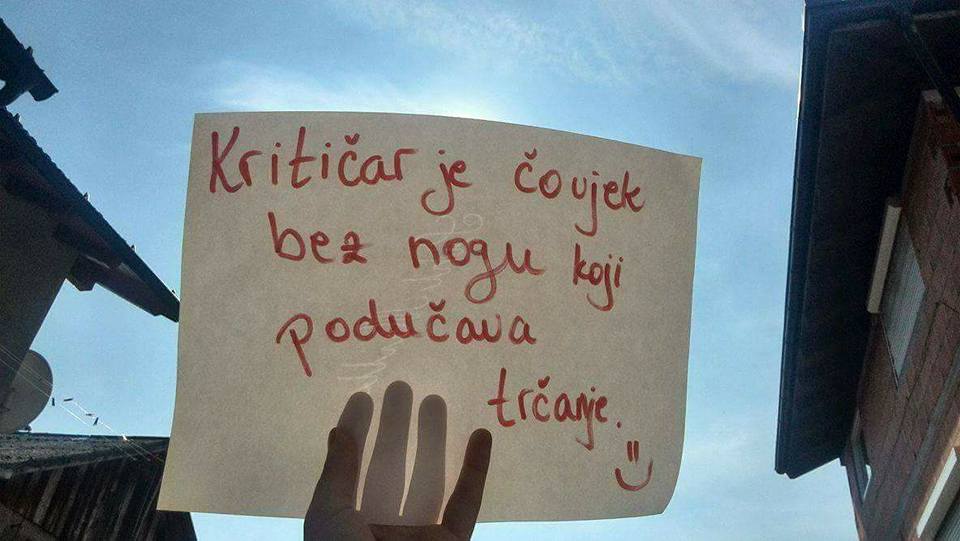 Kritičar je čovjek
bez nogu koji
podučava
trčanje.